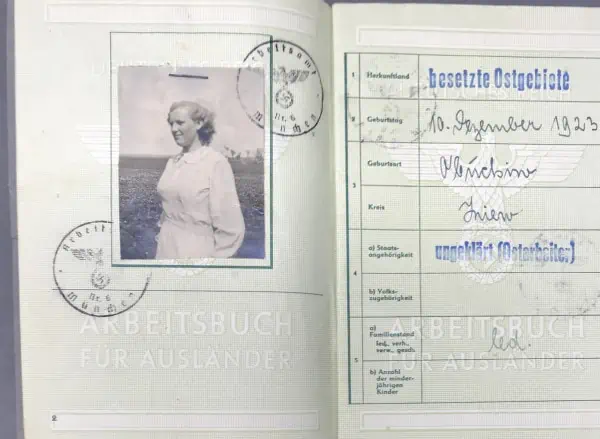 Arbeitsamt
München
Nr. 6
Arbeitsamt
München
Nr. 6
ARBEITSBUCH
FÜR AUSLÄNDER
2
1 Herkunftland besetzte Ostgebiete
2 Geburtstag 10. Dezember 1923
Geburtsort
3
Kreis
4 a) Staats-
angehörigkeit ungeklärt (Ostarbeiter)
b) Volks-
zugehörigkeit
5 a)
Familienstand led.
led., verh.,
verw., gesch.
b) Anzahl
der minder-
jährigen
Kinder
ARBEITSBUCH
FÜR AUSLÄNDER